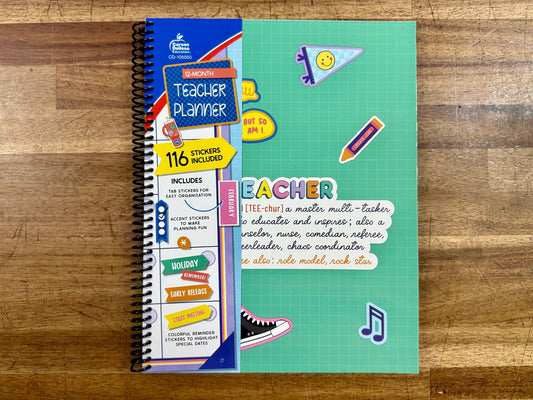 Carson
Dellosa
Education
CD-105050
12-MONTH
TEACHER
PLANNER
116 STICKERS
INCLUDED
INCLUDES
TAB STICKERS FOR
EASY ORGANIZATION
FEBRUARY
ACCENT STICKERS
TO MAKE
PLANNING FUN
HOLIDAY
REMEMBER!
EARLY RELEASE
STAFF MEETING
COLORFUL REMINDER
STICKERS TO HIGHLIGHT
SPECIAL DATES
BUT SO
AM I.
EACHER
[TEE-chur] a master multi-tasker
o educates and inspires; also a
unselor, nurse, comedian, referee,
eerleader, chaos coordinator
ee also: role model, rock star